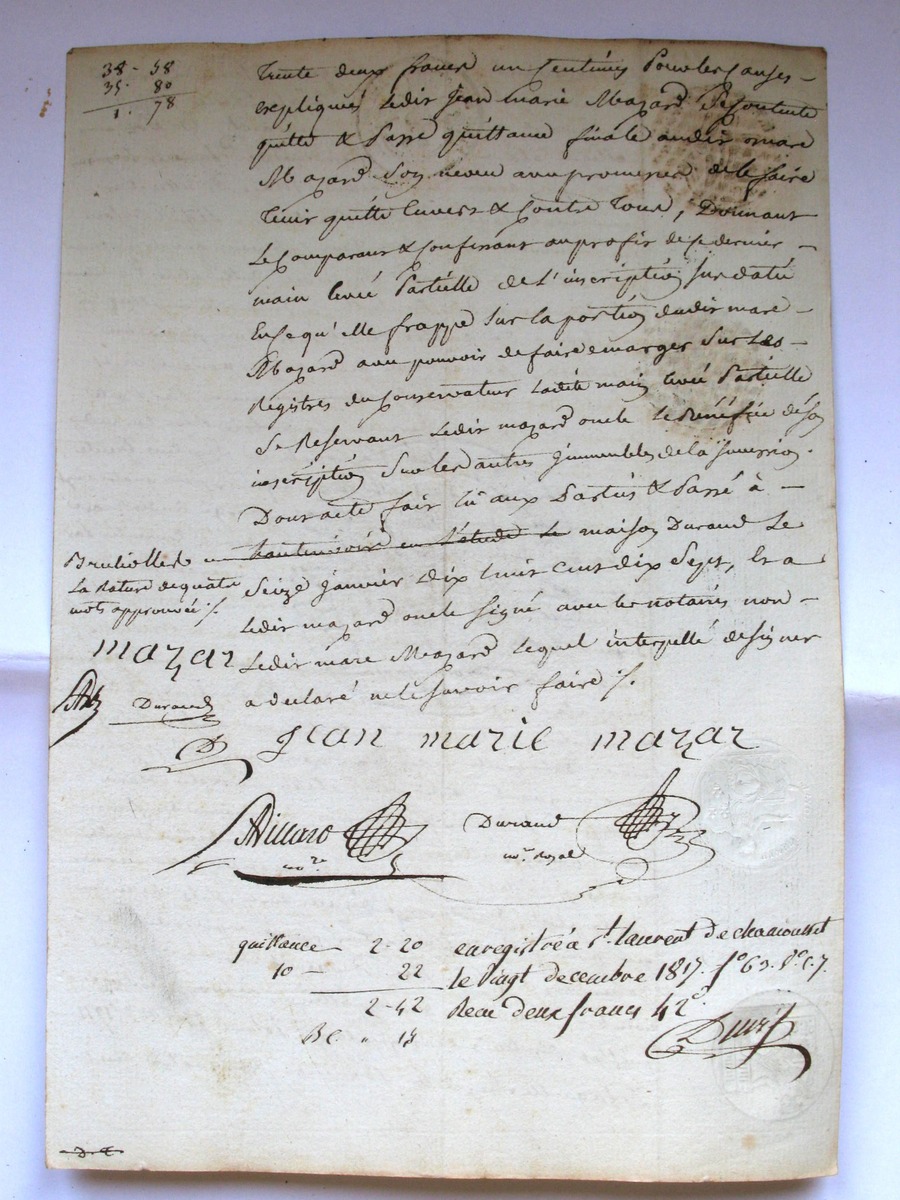 38 - 58
35. 80
1. 78
trente deux francs un centimes Pour les causes -
expliqueés Ledit Jean marie Mazard Se Contente
quitte & Passe quittance finale audit marc
Mazard Son neveu avec promesse de le faire
Tenir quitte Envers & Contre Tous, Donnant
Le Comparant & Confessant au profit de Ce dernier -
main levée Partielle de L'inscription Sus datée
En Ce qu'elle frappe Sur la portion dudit marc -
Mazard avec pouvoir de faire emarger Sur Les -
Registres du Conservateur Ladite main levée Partielle
Se Reservant Ledit mazard oncle Le Bénéfice de Son
inscription Sur les autres immeubles de la Succession.
Dont acte fait lû aux Parties & Passé à -
Bruliolles en l'étude Le maison Durand Le
La Rature de quatre
mots approuvée ./.
Seize janvier Dix huit Cent dix Sept, Et a
Ledit mazard oncle Signé avec les notaires non -
Ledit marc Mazard Lequel interpellé de Signer
a declaré ne le Savoir faire ./.
mazar
Durand
D
jean marie mazar
Villard
nre
Durand
nre royal
quittance 2-20 enregistré à St. laurent de chamousset
10 — 22 le vingt decembre 1817. fo 63. Vo C. 7.
2-42 Recu deux francs 42c.